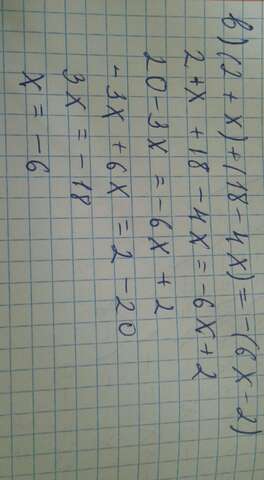 в) (2 + x) + (18 - 4x) = -(6x - 2)
2 + x + 18 - 4x = -6x + 2
20 - 3x = -6x + 2
-3x + 6x = 2 - 20
3x = -18
x = -6